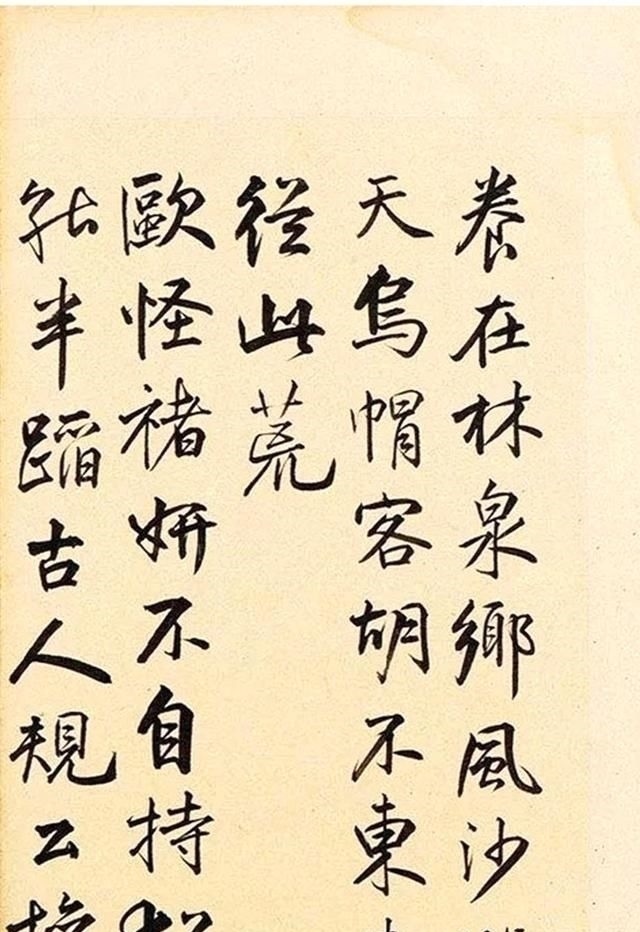 養在林泉鄉風沙
天烏帽客胡不東
從此荒
歐怪褚妍不自持
能半蹈古人規公